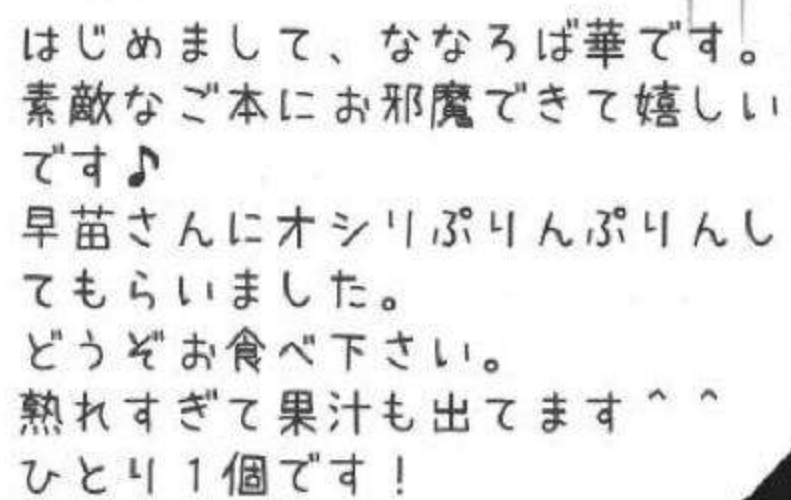 はじめまして、ななろば華です。
素敵なご本にお邪魔できて嬉しい
です♪
早苗さんにオシリぷりんぷりんし
てもらいました。
どうぞお食べ下さい。
熟れすぎて果汁も出てます＾＾
ひとり1個です！